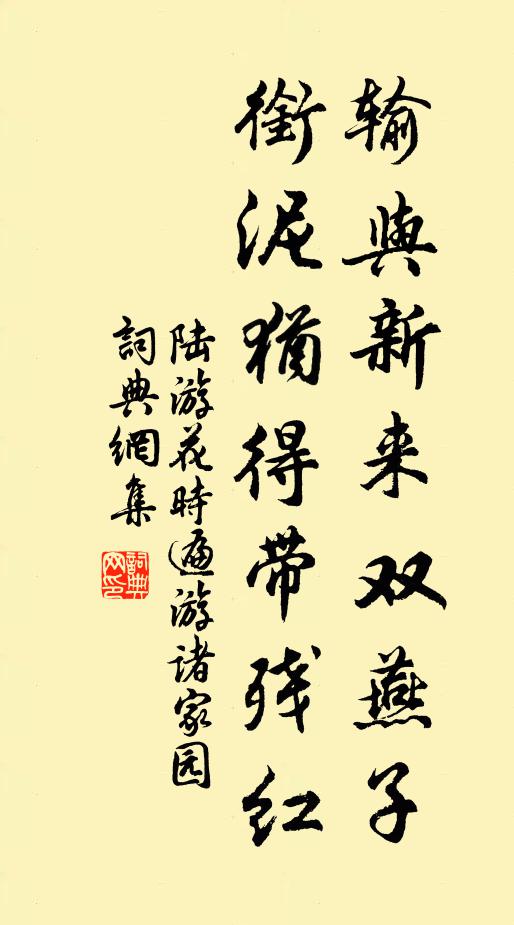 输与新来双燕子
衔泥犹得带残红
陆游花时遍游诸家园
词典网集
詞典网印